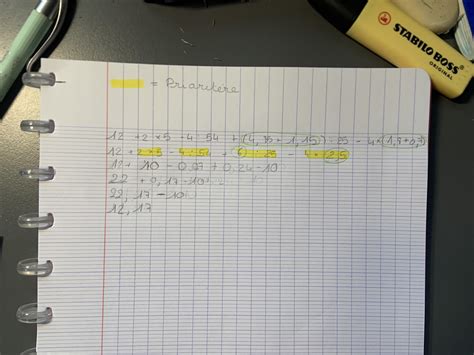 STABILO BOSS
ORIGINAL
= Prioritère
12 + 2 × 5 - 4 : 54 + (4,85 + 1,15) : 25 - 4 × (1,7 + 0,8)
12 + 2 × 5 - 4 : 54 + 6 : 25 - 4 × 2,5
12 + 10 - 0,07 + 0,24 - 10
22 + 0,17 - 10
22,17 - 10
12,17